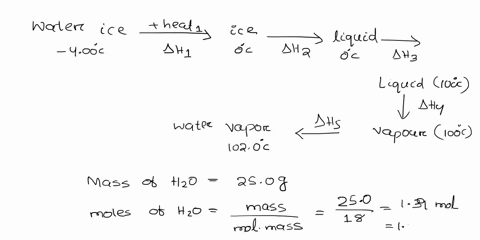 Water ice + heat1 ice liquid
-4.00°C ΔH1 0°C ΔH2 0°C ΔH3
Liquid (100°C)
ΔH4
water vapor ΔH5 vapour (100°C)
102.0°C
Mass of H2O = 25.0g
moles of H2O = mass / mol. mass = 25.0 / 18 = 1.39 mol
= 1.